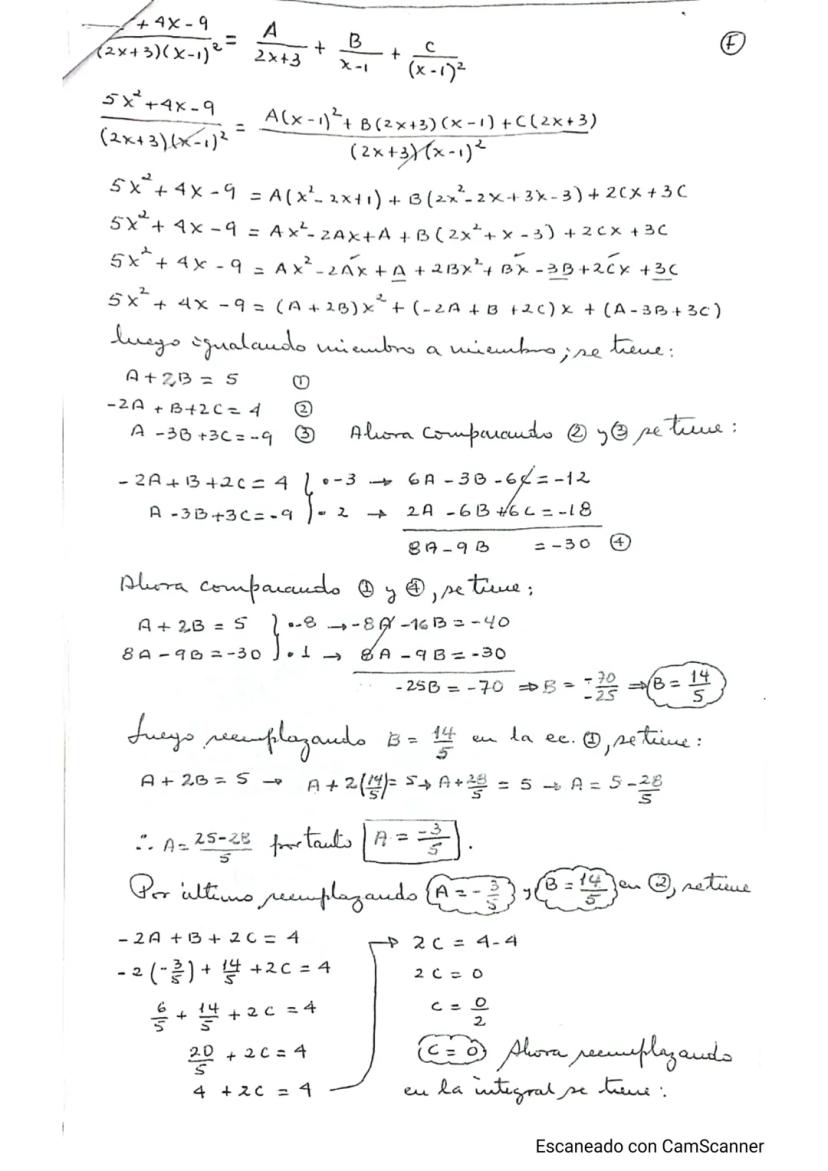 + 4x - 9 / (2x+3)(x-1)² = A / 2x+3 + B / x-1 + C / (x-1)²
F
5x² + 4x - 9 / (2x+3)(x-1)² = A(x-1)² + B(2x+3)(x-1) + C(2x+3) / (2x+3)(x-1)²
5x² + 4x - 9 = A(x² - 2x+1) + B(2x² - 2x + 3x - 3) + 2Cx + 3C
5x² + 4x - 9 = Ax² - 2Ax + A + B(2x² + x - 3) + 2Cx + 3C
5x² + 4x - 9 = Ax² - 2Ax + A + 2Bx² + Bx - 3B + 2Cx + 3C
5x² + 4x - 9 = (A + 2B)x² + (-2A + B + 2C)x + (A - 3B + 3C)
luego igualando miembro a miembro; se tiene:
A + 2B = 5 ①
-2A + B + 2C = 4 ②
A - 3B + 3C = -9 ③ Ahora comparando ② y ③ se tiene:
-2A + B + 2C = 4 } · -3 → 6A - 3B - 6C = -12
A - 3B + 3C = -9 } · 2 → 2A - 6B + 6C = -18
8A - 9B = -30 ④
Ahora comparando ① y ④, se tiene:
A + 2B = 5 } · -8 → -8A - 16B = -40
8A - 9B = -30 } · 1 → 8A - 9B = -30
-25B = -70 ⇒ B = -70/-25 ⇒ B = 14/5
Luego reemplazando B = 14/5 en la ec. ①, se tiene:
A + 2B = 5 → A + 2(14/5) = 5 → A + 28/5 = 5 → A = 5 - 28/5
∴ A = 25-28/5 por tanto A = -3/5.
Por último reemplazando A = -3/5 y B = 14/5 en ②, se tiene
-2A + B + 2C = 4
-2(-3/5) + 14/5 + 2C = 4
6/5 + 14/5 + 2C = 4
20/5 + 2C = 4
4 + 2C = 4
→ 2C = 4 - 4
2C = 0
C = 0/2
C = 0 Ahora reemplazando
en la integral se tiene:
Escaneado con CamScanner